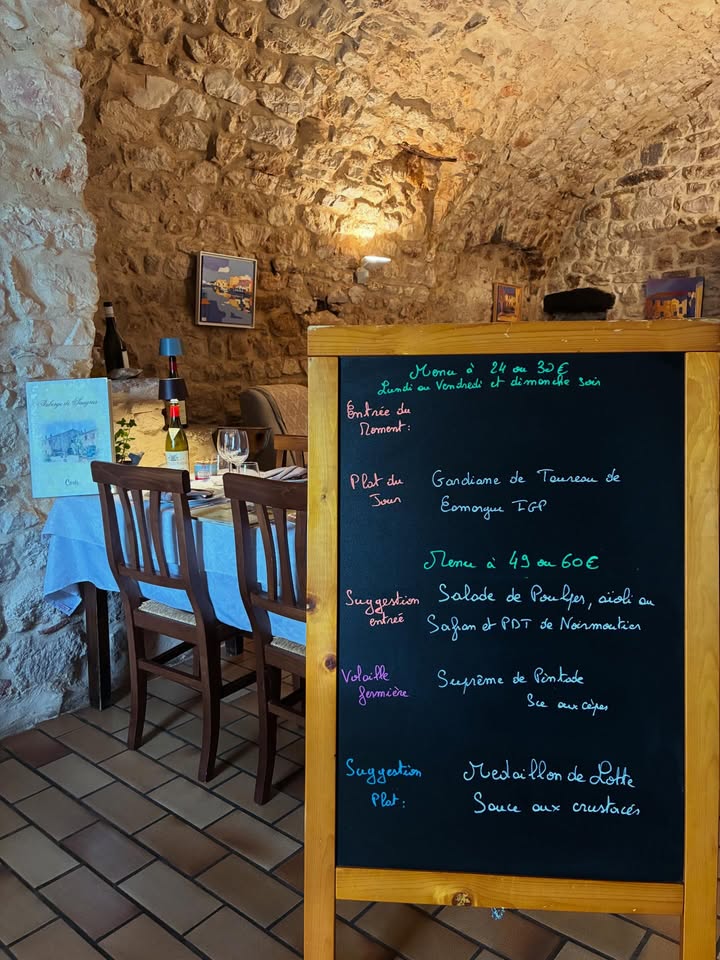 Auberge de Sauguras
Carte
Menu à 24 ou 30€
Lundi au Vendredi et dimanche soir
Entrée du
Moment:
Plat du
Jour
Gardiane de Taureau de
Camargue IGP
Menu à 49 ou 60€
Suggestion
entrée
Salade de Poulpes, aïoli au
Safran et PDT de Noirmoutier
Volaille
fermière
Suprême de Pintade
Sce aux cèpes
Suggestion
Plat:
Medaillon de Lotte
Sauce aux crustacés